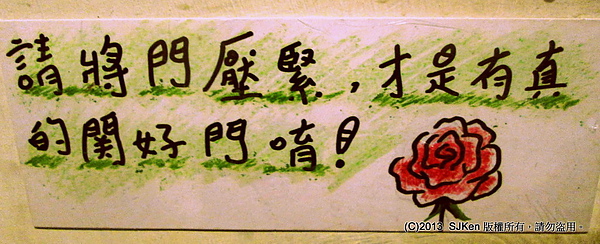 請將門壓緊，才是有真
的関好門唷！
(C)2013 SJKen 版權所有，請勿盜用。